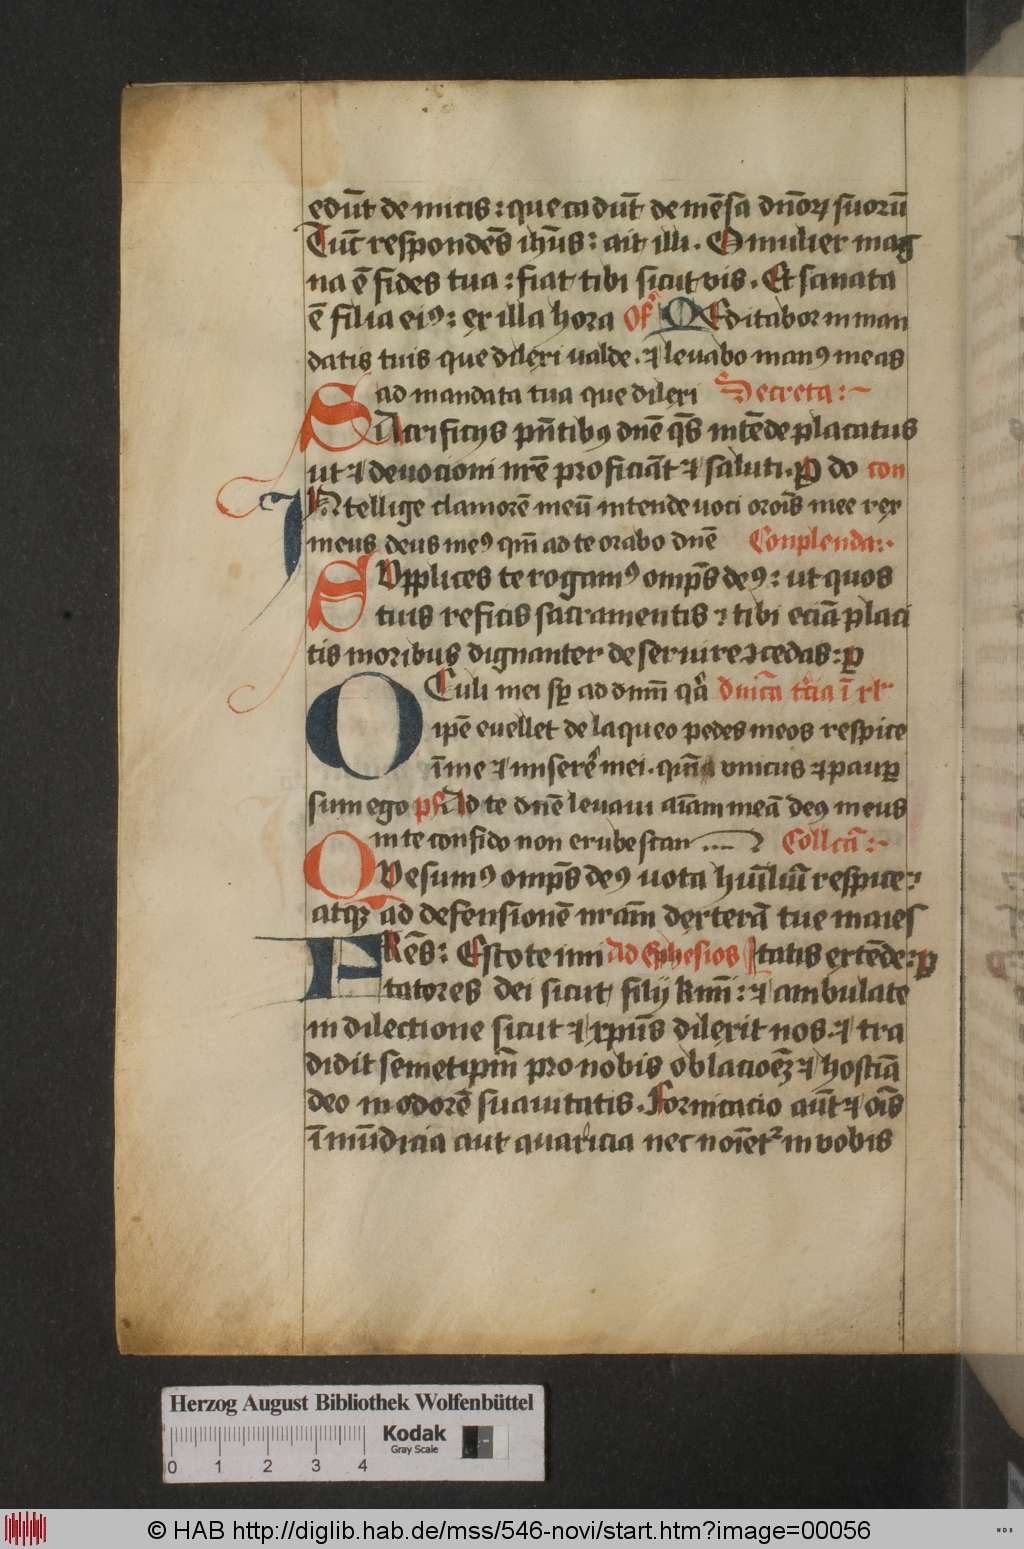 edūt de micis : que cadūt de mēsa dn̄oꝝ suorū
Tūc respondēs ihūs : ait illi . O mulier mag
na ē fides tua : fiat tibi sicut vis . Et sanata
ē filia eiꝰ : ex illa hora Of̄ MEditabor in man
datis tuis que dilexi valde . ⁊ levabo manꝰ meas
ad mandata tua que dilexi Secreta :
SAcrificiis pn̄tibꝰ dn̄e qs̄ intēde placatus
ut ⁊ devocioni nr̄e proficiāt ⁊ saluti . P do con
INtellige clamorē meū intende voci orōis mee rex
meus deus meꝰ qm̄ ad te orabo dn̄e Conplenda :
SUpplices te rogamꝰ omp̄s deꝰ : ut quos
tuis reficis sacramentis ⁊ tibi eciā placi
tis moribus dignanter deservire ↄcedas : p
OCuli mei sp̄ ad dnm̄ qa dn̄ica tcia ī xl
ip̄e evellet de laqueo pedes meos respice
ī me ⁊ miserē mei . qm̄ unicus ⁊ paup̄
sum ego ps̄ Ad te dn̄e levavi aīam meā deꝰ meus
in te confido non erubescan .... Collcā :
QUesumꝰ omp̄s deꝰ vota huīliū respice :
atqꝫ ad defensionē nrām dexterā tue maies
FRēs : Estote imi Ad Ephesios tatis extēde : p
tatores dei sicut filii kmī : ⁊ ambulate
in dilectione sicut ⁊ xpūs dilexit nos . ⁊ tra
didit semetipm̄ pro nobis oblacioēꝫ ⁊ hostiā
deo in odorē suavitatis . Fornicacio aūt ⁊ oīs
īmūdicia aut avaricia nec noīet² in vobis
Herzog August Bibliothek Wolfenbüttel
Kodak
Gray Scale
0 1 2 3 4
© HAB http://diglib.hab.de/mss/546-novi/start.htm?image=00056